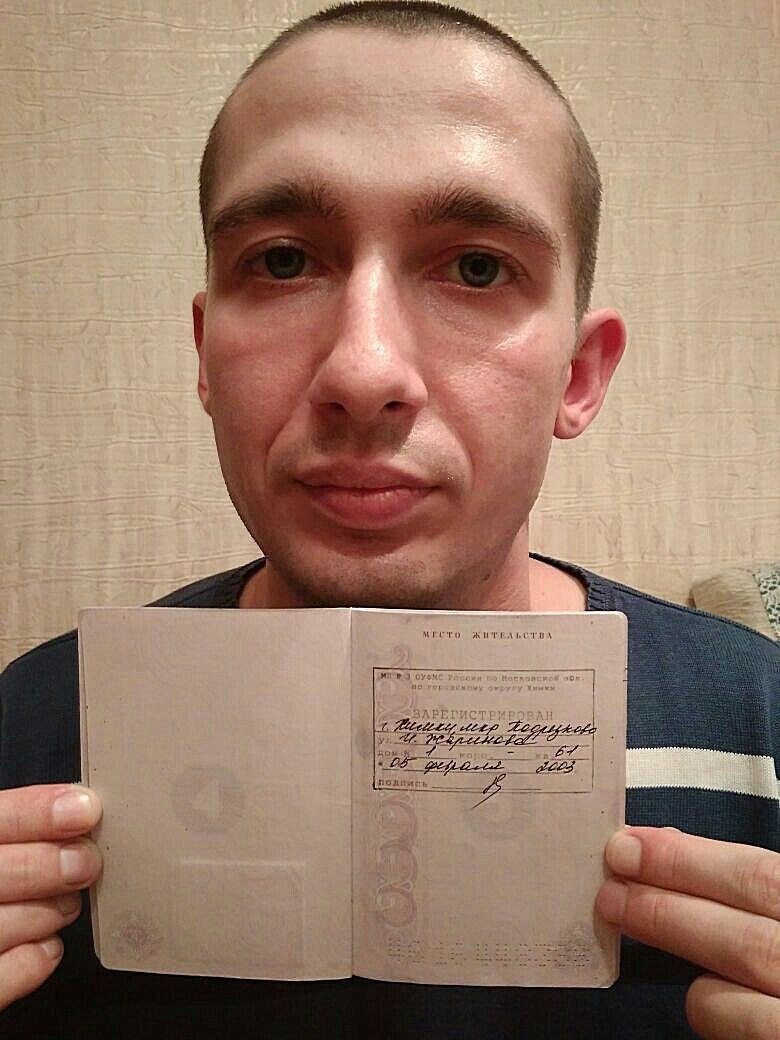 МЕСТО ЖИТЕЛЬСТВА
МП № 3 ОУФМС России по Московской обл.
по городскому округу Химки
ЗАРЕГИСТРИРОВАН
г. Химки мкр Подрезково
ул. И. Жаринова
дом № 1 корп. - кв 61
" 05 февраля 2003
подпись